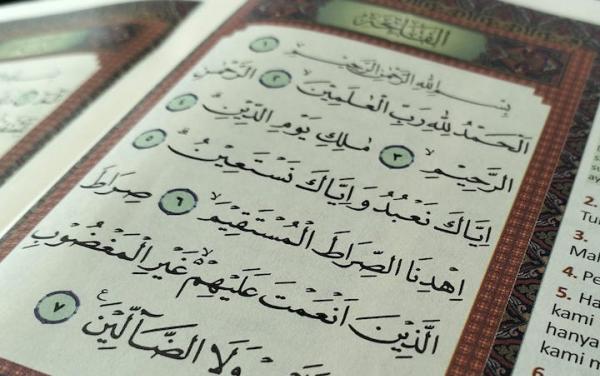 الفاتحة
بِسْمِ اللّٰهِ الرَّحْمٰنِ الرَّحِيْمِ ١
اَلْحَمْدُ لِلّٰهِ رَبِّ الْعٰلَمِيْنَۙ ٢ الرَّحْمٰنِ
الرَّحِيْمِۙ ٣ مٰلِكِ يَوْمِ الدِّيْنِۗ ٤
اِيَّاكَ نَعْبُدُ وَاِيَّاكَ نَسْتَعِيْنُۗ ٥
اِهْدِنَا الصِّرَاطَ الْمُسْتَقِيْمَۙ ٦ صِرَاطَ
الَّذِيْنَ اَنْعَمْتَ عَلَيْهِمْ ەۙ غَيْرِ الْمَغْضُوْبِ
وَلَا الضَّاۤلِّيْنَࣖ ٧
2.
3.
4.
5.
kami
hanya
kami
6